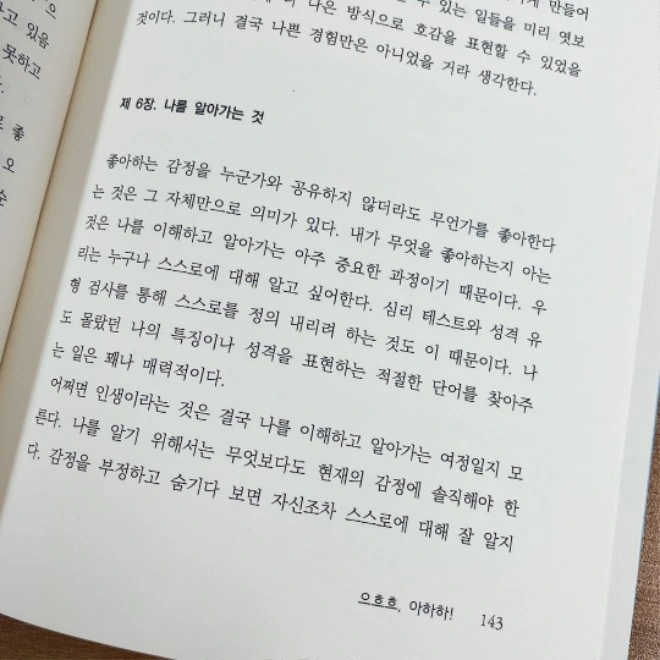 으
고 있음
못하고
좋
오
순
만들어
수 있는 일들을 미리 엿보
나은 방식으로 호감을 표현할 수 있었을
것이다. 그러니 결국 나쁜 경험만은 아니었을 거라 생각한다.
제 6장. 나를 알아가는 것
좋아하는 감정을 누군가와 공유하지 않더라도 무언가를 좋아한다
는 것은 그 자체만으로 의미가 있다. 내가 무엇을 좋아하는지 아는
것은 나를 이해하고 알아가는 아주 중요한 과정이기 때문이다. 우
리는 누구나 스스로에 대해 알고 싶어한다. 심리 테스트와 성격 유
형 검사를 통해 스스로를 정의 내리려 하는 것도 이 때문이다. 나
도 몰랐던 나의 특징이나 성격을 표현하는 적절한 단어를 찾아주
는 일은 꽤나 매력적이다.
어쩌면 인생이라는 것은 결국 나를 이해하고 알아가는 여정일지 모
른다. 나를 알기 위해서는 무엇보다도 현재의 감정에 솔직해야 한
다. 감정을 부정하고 숨기다 보면 자신조차 스스로에 대해 잘 알지
으흐흐, 아하하! 143